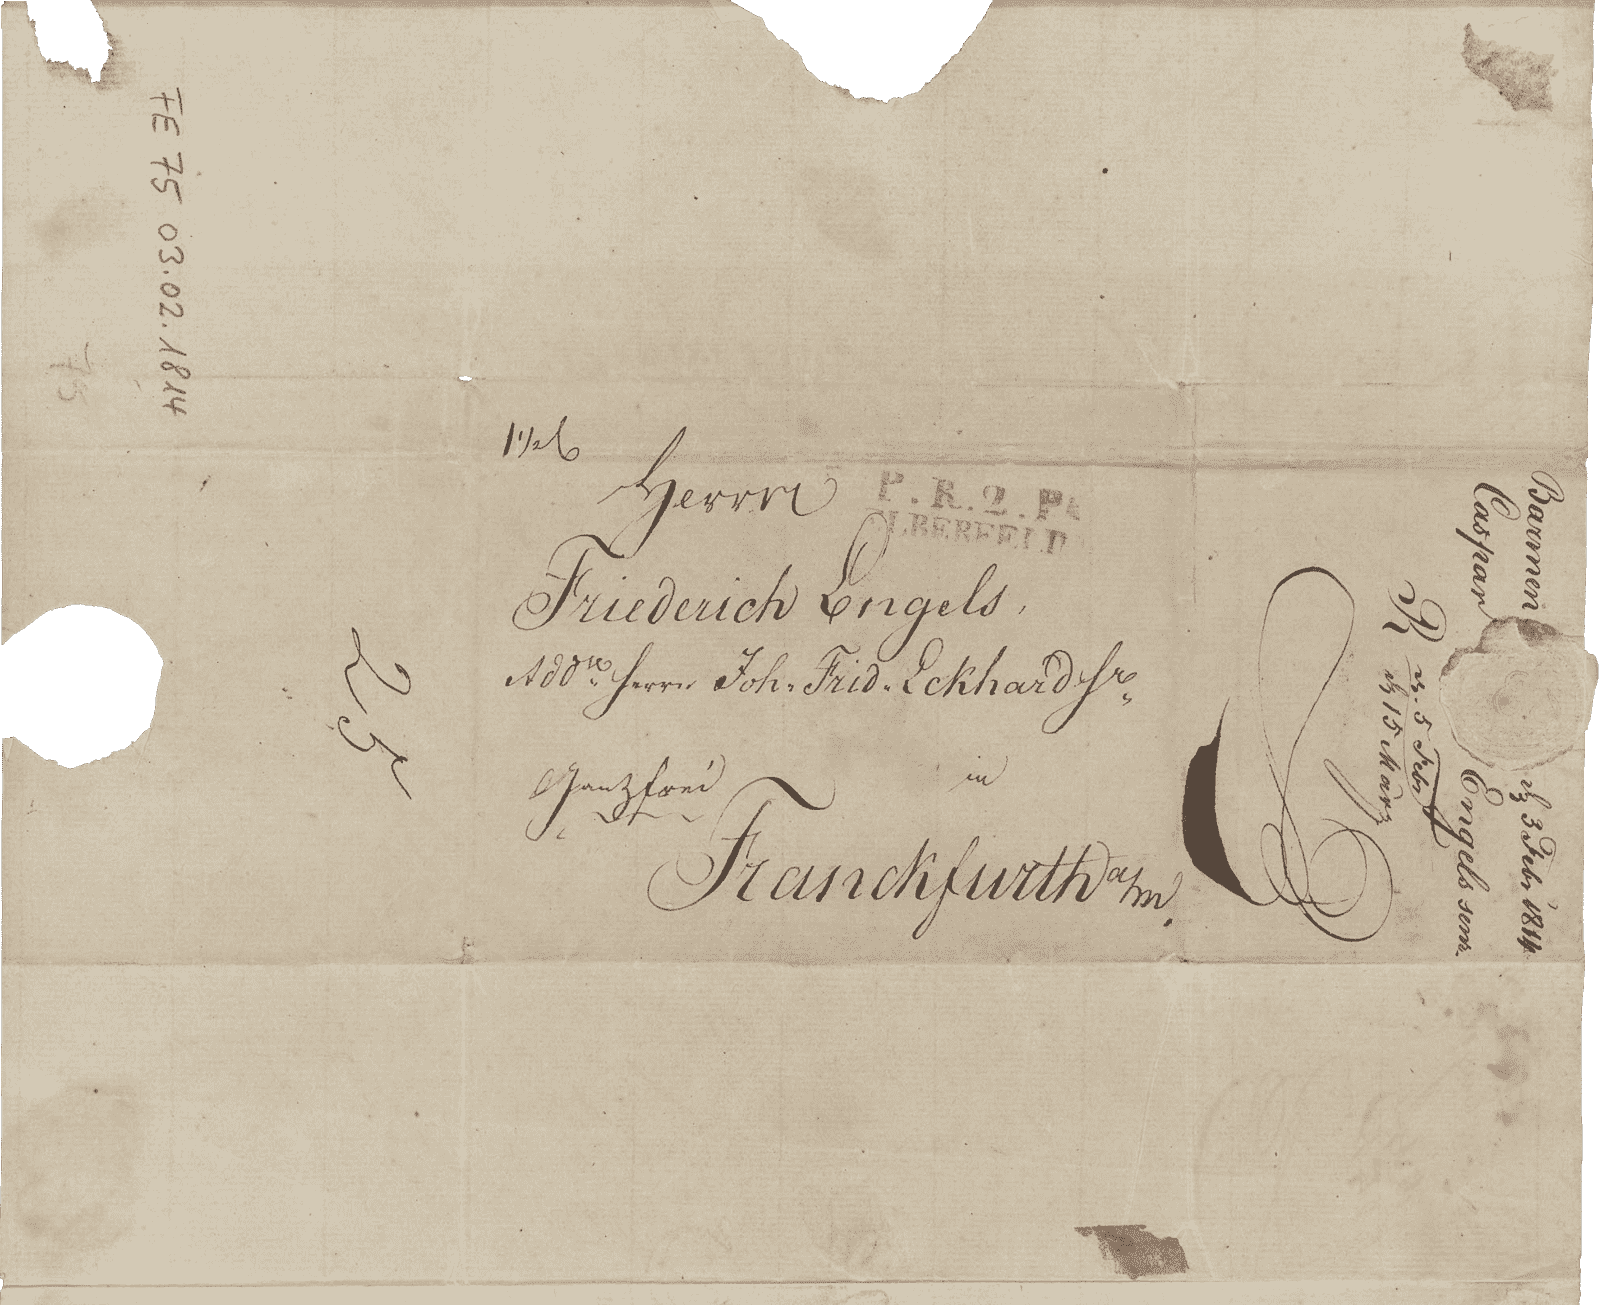 FE 75 03.02.1814
75
Herrn
P. R. 2. P
LBERFELD
Friederich Engels,
Addre. Herrn Joh. Frid. Eckhard Sr.
Ganz frei
in
Franckfurth a/m.
25
Barmen d 3 Febr 1814
Caspar Engels senr.
R d. 5 Febr
d 15 Marz